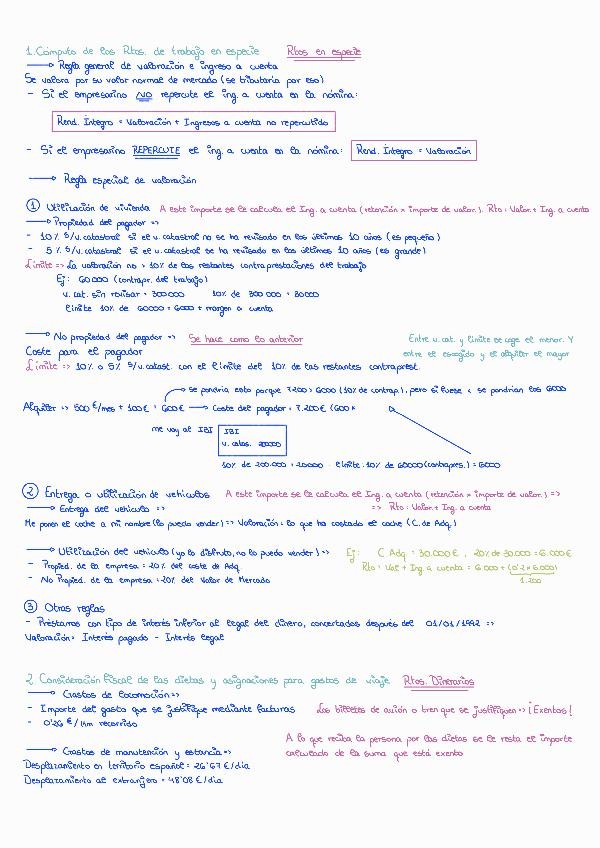 1. Cómputo de los Rtos. de trabajo en especie Rtos en especie
→ Regla general de valoración e ingreso a cuenta
Se valora por su valor normal de mercado (se tributaria por eso)
- Si el empresarino NO repercute el ing. a cuenta en la nómina:
Rend. Íntegro = Valoración + Ingresos a cuenta no repercutido
- Si el empresarino REPERCUTE el ing. a cuenta en la nómina: Rend. Íntegro = Valoración
→ Regla especial de valoración
① Utilización de vivienda A este importe se le calcula el Ing. a cuenta (retención × importe de valor.). Rto: Valor + Ing. a cuenta
→ Propiedad del pagador =>
- 10% s/v. catastral si el v. catastral no se ha revisado en los últimos 10 años (es pequeño)
- 5% s/v. catastral si el v. catastral se ha revisado en los últimos 10 años (es grande)
Límite => La valoración no > 10% de las restantes contraprestaciones del trabajo
Ej: 60000 (contrapr. del trabajo)
v. cat. sin revisar = 300000 10% de 300000 = 30000
límite 10% de 60000 = 6000 + margen a cuenta
→ No propiedad del pagador => Se hace como lo anterior
Entre v. cat. y límite se coge el menor. Y
Coste para el pagador
entre el escogido y el alquiler el mayor
Límite => 10% o 5% s/v. catast. con el límite del 10% de las restantes contraprest.
→ se pondría esto porque 7.200 > 6000 (10% de contrap.), pero si fuese < se pondrían los 6000
Alquiler => 500 €/mes + 100€ = 600€ → Coste del pagador = 7.200€ (600 ×
me voy al IBI IBI
v. catas. 20000
10% de 200.000 = 20000 límite: 10% de 60000 (contrapres.) = 6000
② Entrega o utilización de vehículos A este importe se le calcula el Ing. a cuenta (retención × importe de valor.) =>
→ Entrega del vehículo => => Rto: Valor. + Ing. a cuenta
Me ponen el coche a mi nombre (lo puedo vender) => Valoración = lo que ha costado el coche (C. de Adq.)
→ Utilización del vehículo (yo lo disfruto, no lo puedo vender) => Ej: C Adq = 30.000€, 20% de 30.000 = 6.000€
- Propied. de la empresa = 20% del coste de Adq. Rto = Val + Ing. a cuenta = 6.000 + (0'2 × 6.000)
- No Propied. de la empresa = 20% del Valor de Mercado 1.200
③ Otras reglas
- Préstamos con tipo de interés inferior al legal del dinero, concertados después del 01/01/1992 =>
Valoración = Interés pagado - Interés legal
2. Consideración fiscal de las dietas y asignaciones para gastos de viaje Rtos. Dinerarios
→ Gastos de locomoción =>
- Importe del gasto que se justifique mediante facturas Los billetes de avión o tren que se justifiquen => ¡Exentos!
- 0'26 €/km recorrido
A lo que reciba la persona por las dietas se le resta el importe
→ Gastos de manutención y estancia =>
calculado de la suma que está exento
Desplazamiento en territorio español = 26'67 €/día
Desplazamiento al extranjero = 48'08 €/día